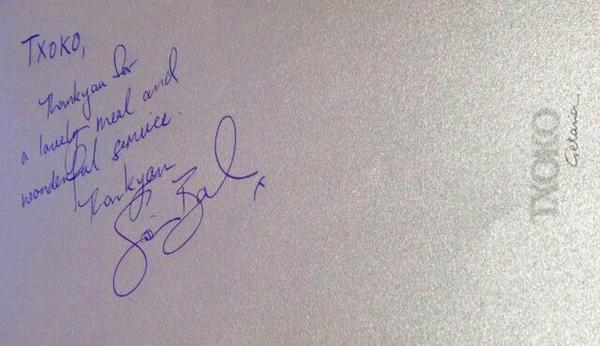 TXOKO,
Thankyou for
a lovely meal and
wonderful service.
Thankyou
x
TXOKO
Getaria